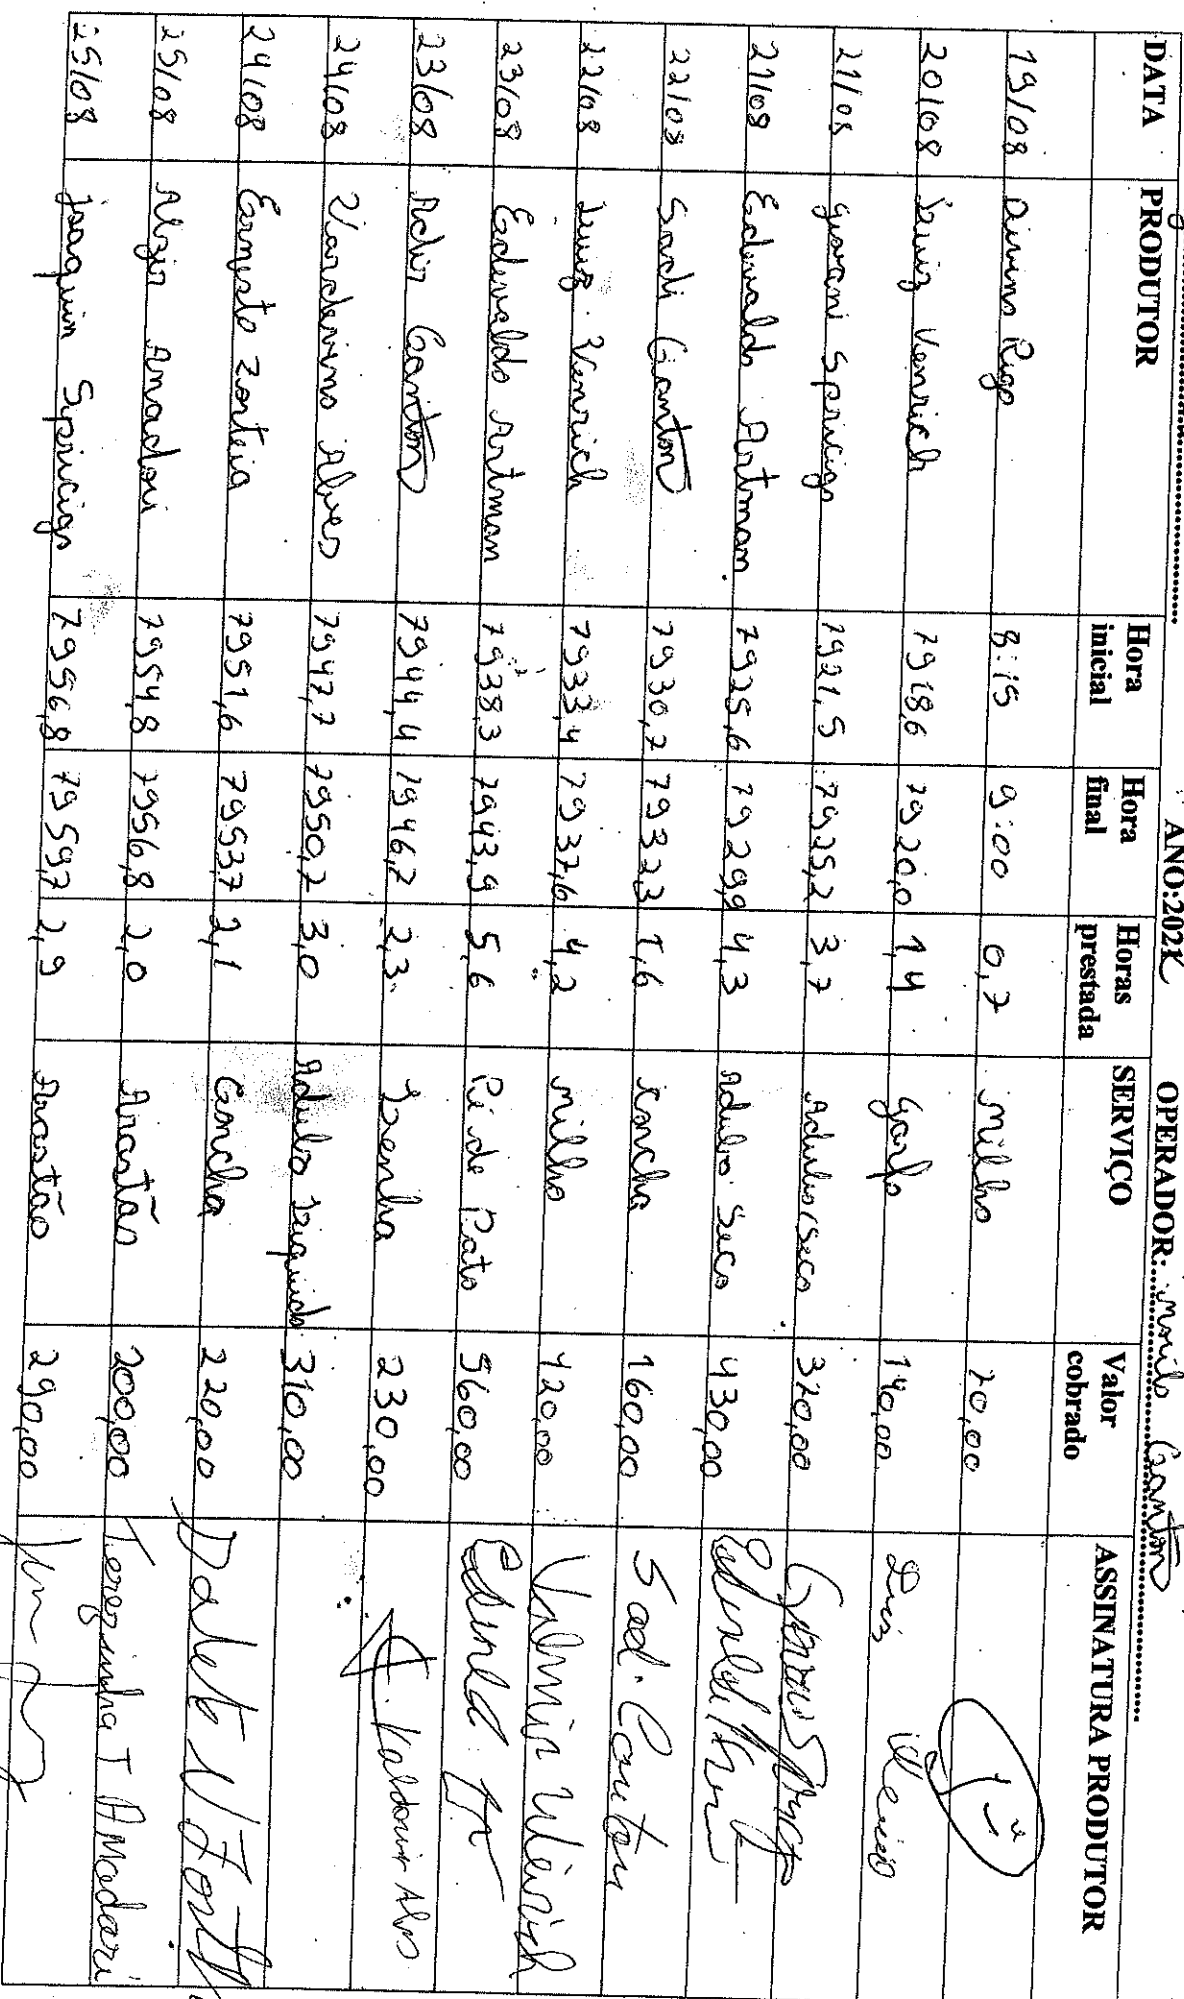 ANO:202K OPERADOR: monilo Canton
DATA PRODUTOR Hora inicial Hora final Horas prestada SERVIÇO Valor cobrado ASSINATURA PRODUTOR
19/08 Divino Rigo 8:15 9:00 0,7 milho 70,00
20/08 Luiz Venrich 7918,6 7920,0 1,4 garfo 140,00 Luiz
21/08 giovani Spricigo 7921,5 7925,2 3,7 Adubo Seco 370,00
21/08 Edevaldo Artmam 7925,6 7929,9 4,3 Adubo Seco 430,00
22/08 Sadi Canton 7930,7 7932,3 1,6 concha 160,00 Sadi Canton
22/08 Luiz Venrich 7933,4 7937,6 4,2 milho 420,00 Valmir Weirich
23/08 Edevaldo Artman 7938,3 7943,9 5,6 Pé de Pato 560,00
23/08 Adir Canton 7944,4 7946,7 2,3 Lenha 230,00
24/08 Vardevino Alves 7947,7 7950,7 3,0 Adubo Liquido 310,00 Valdovir Alvs
24/08 Ernesto Zorteia 7951,6 7953,7 2,1 Concha 220,00
25/08 Alzir Amadori 7954,8 7956,8 2,0 Arastão 200,00 Terezinha T Amadori
25/08 joaquin Spricigo 7956,8 7959,7 2,9 Arastão 290,00